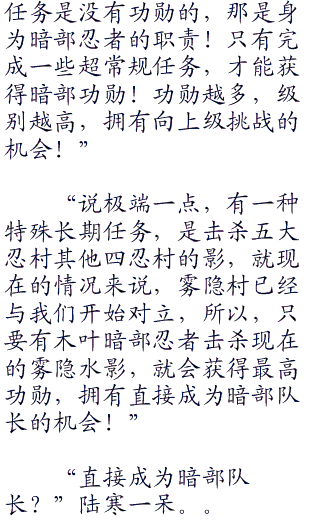 任务是没有功勋的，那是身
为暗部忍者的职责！只有完
成一些超常规任务，才能获
得暗部功勋！功勋越多，级
别越高，拥有向上级挑战的
机会！”
“说极端一点，有一种
特殊长期任务，是击杀五大
忍村其他四忍村的影，就现
在的情况来说，雾隐村已经
与我们开始对立，所以，只
要有木叶暗部忍者击杀现在
的雾隐水影，就会获得最高
功勋，拥有直接成为暗部队
长的机会！”
“直接成为暗部队
长？”陆寒一呆。。